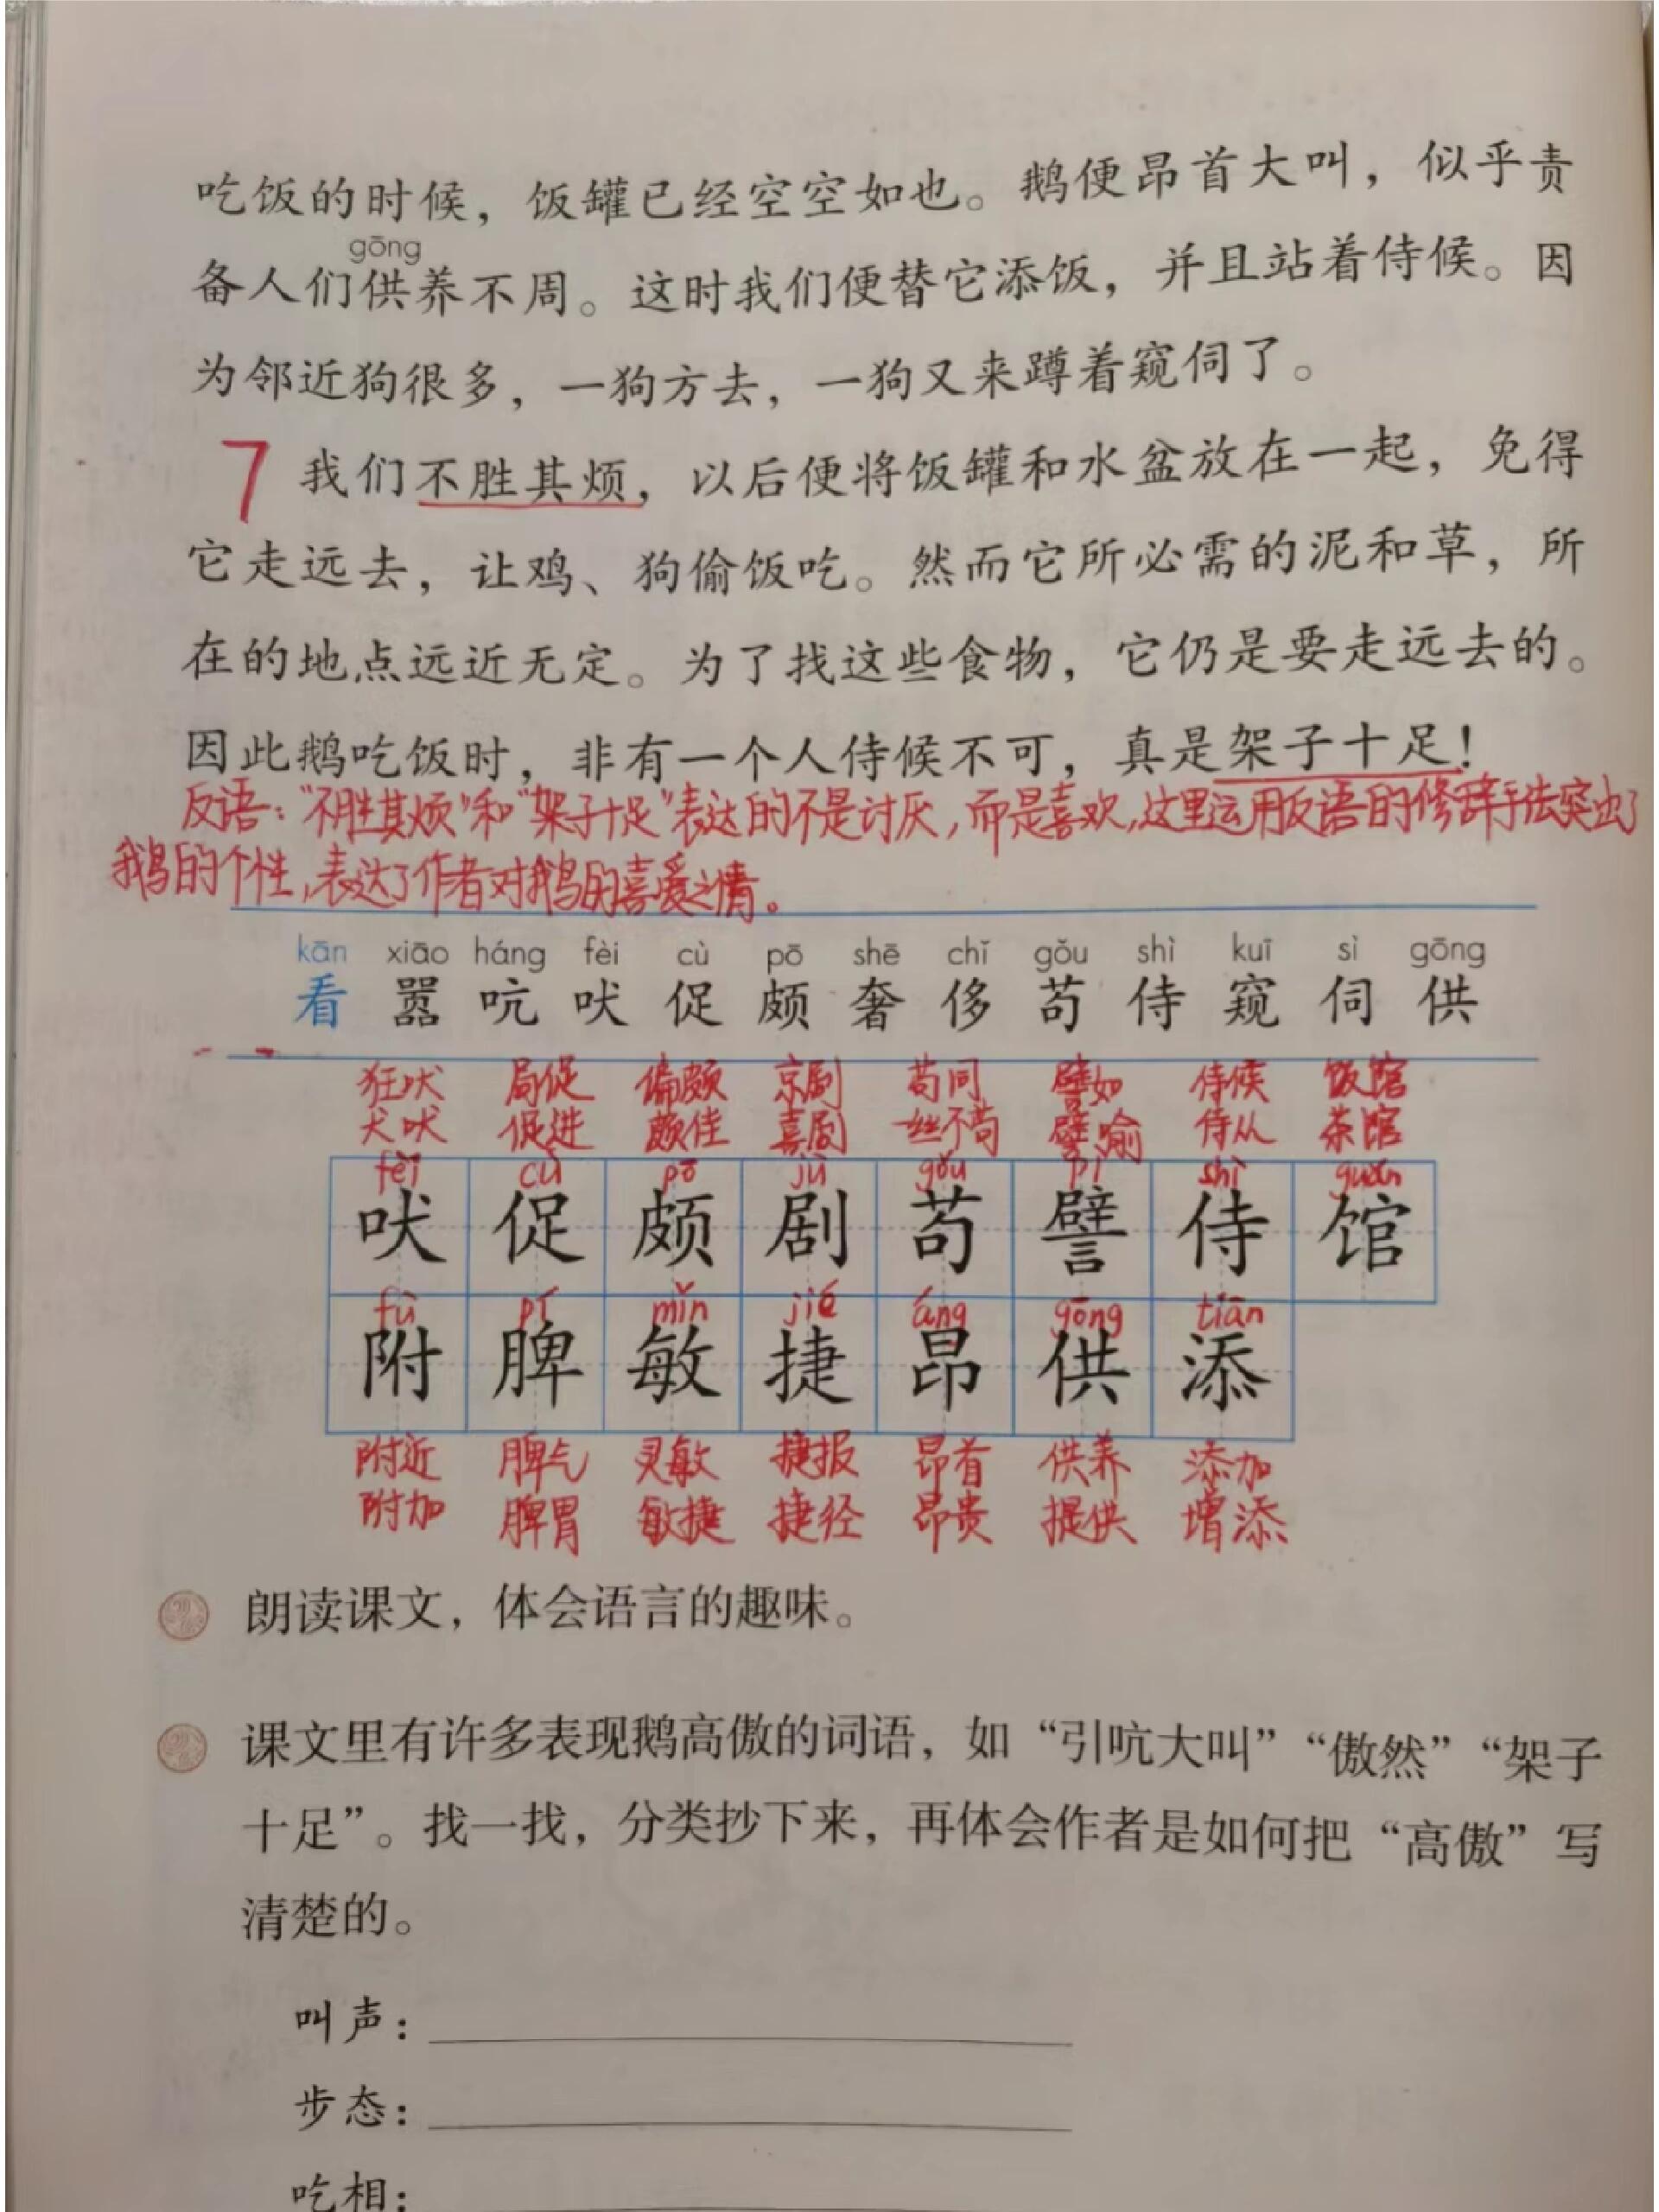 吃饭的时候，饭罐已经空空如也。鹅便昂首大叫，似乎责
gōng
备人们供养不周。这时我们便替它添饭，并且站着侍候。因
为邻近狗很多，一狗方去，一狗又来蹲着窥伺了。
7 我们不胜其烦，以后便将饭罐和水盆放在一起，免得
它走远去，让鸡、狗偷饭吃。然而它所必需的泥和草，所
在的地点远近无定。为了找这些食物，它仍是要走远去的。
因此鹅吃饭时，非有一个人侍候不可，真是架子十足！
反语："不胜其烦"和"架子十足"表达的不是讨厌，而是喜欢，这里运用反语的修辞手法突出了
鹅的个性，表达了作者对鹅的喜爱之情。
kān xiāo háng fèi cù pō shē chǐ gǒu shì kuī sì gōng
看 嚣 吭 吠 促 颇 奢 侈 苟 侍 窥 伺 供
狂吠 局促 偏颇 京剧 苟同 譬如 侍候 饭馆
犬吠 促进 颇佳 喜剧 一丝不苟 譬喻 侍从 茶馆
fèi cù pō jù gǒu pì shì guǎn
吠 促 颇 剧 苟 譬 侍 馆
fù pí mǐn jié áng gōng tiān
附 脾 敏 捷 昂 供 添
附近 脾气 灵敏 捷报 昂首 供养 添加
附加 脾胃 敏捷 捷径 昂贵 提供 增添
朗读课文，体会语言的趣味。
课文里有许多表现鹅高傲的词语，如“引吭大叫”“傲然”“架子
十足”。找一找，分类抄下来，再体会作者是如何把“高傲”写
清楚的。
叫声：
步态：
吃相：